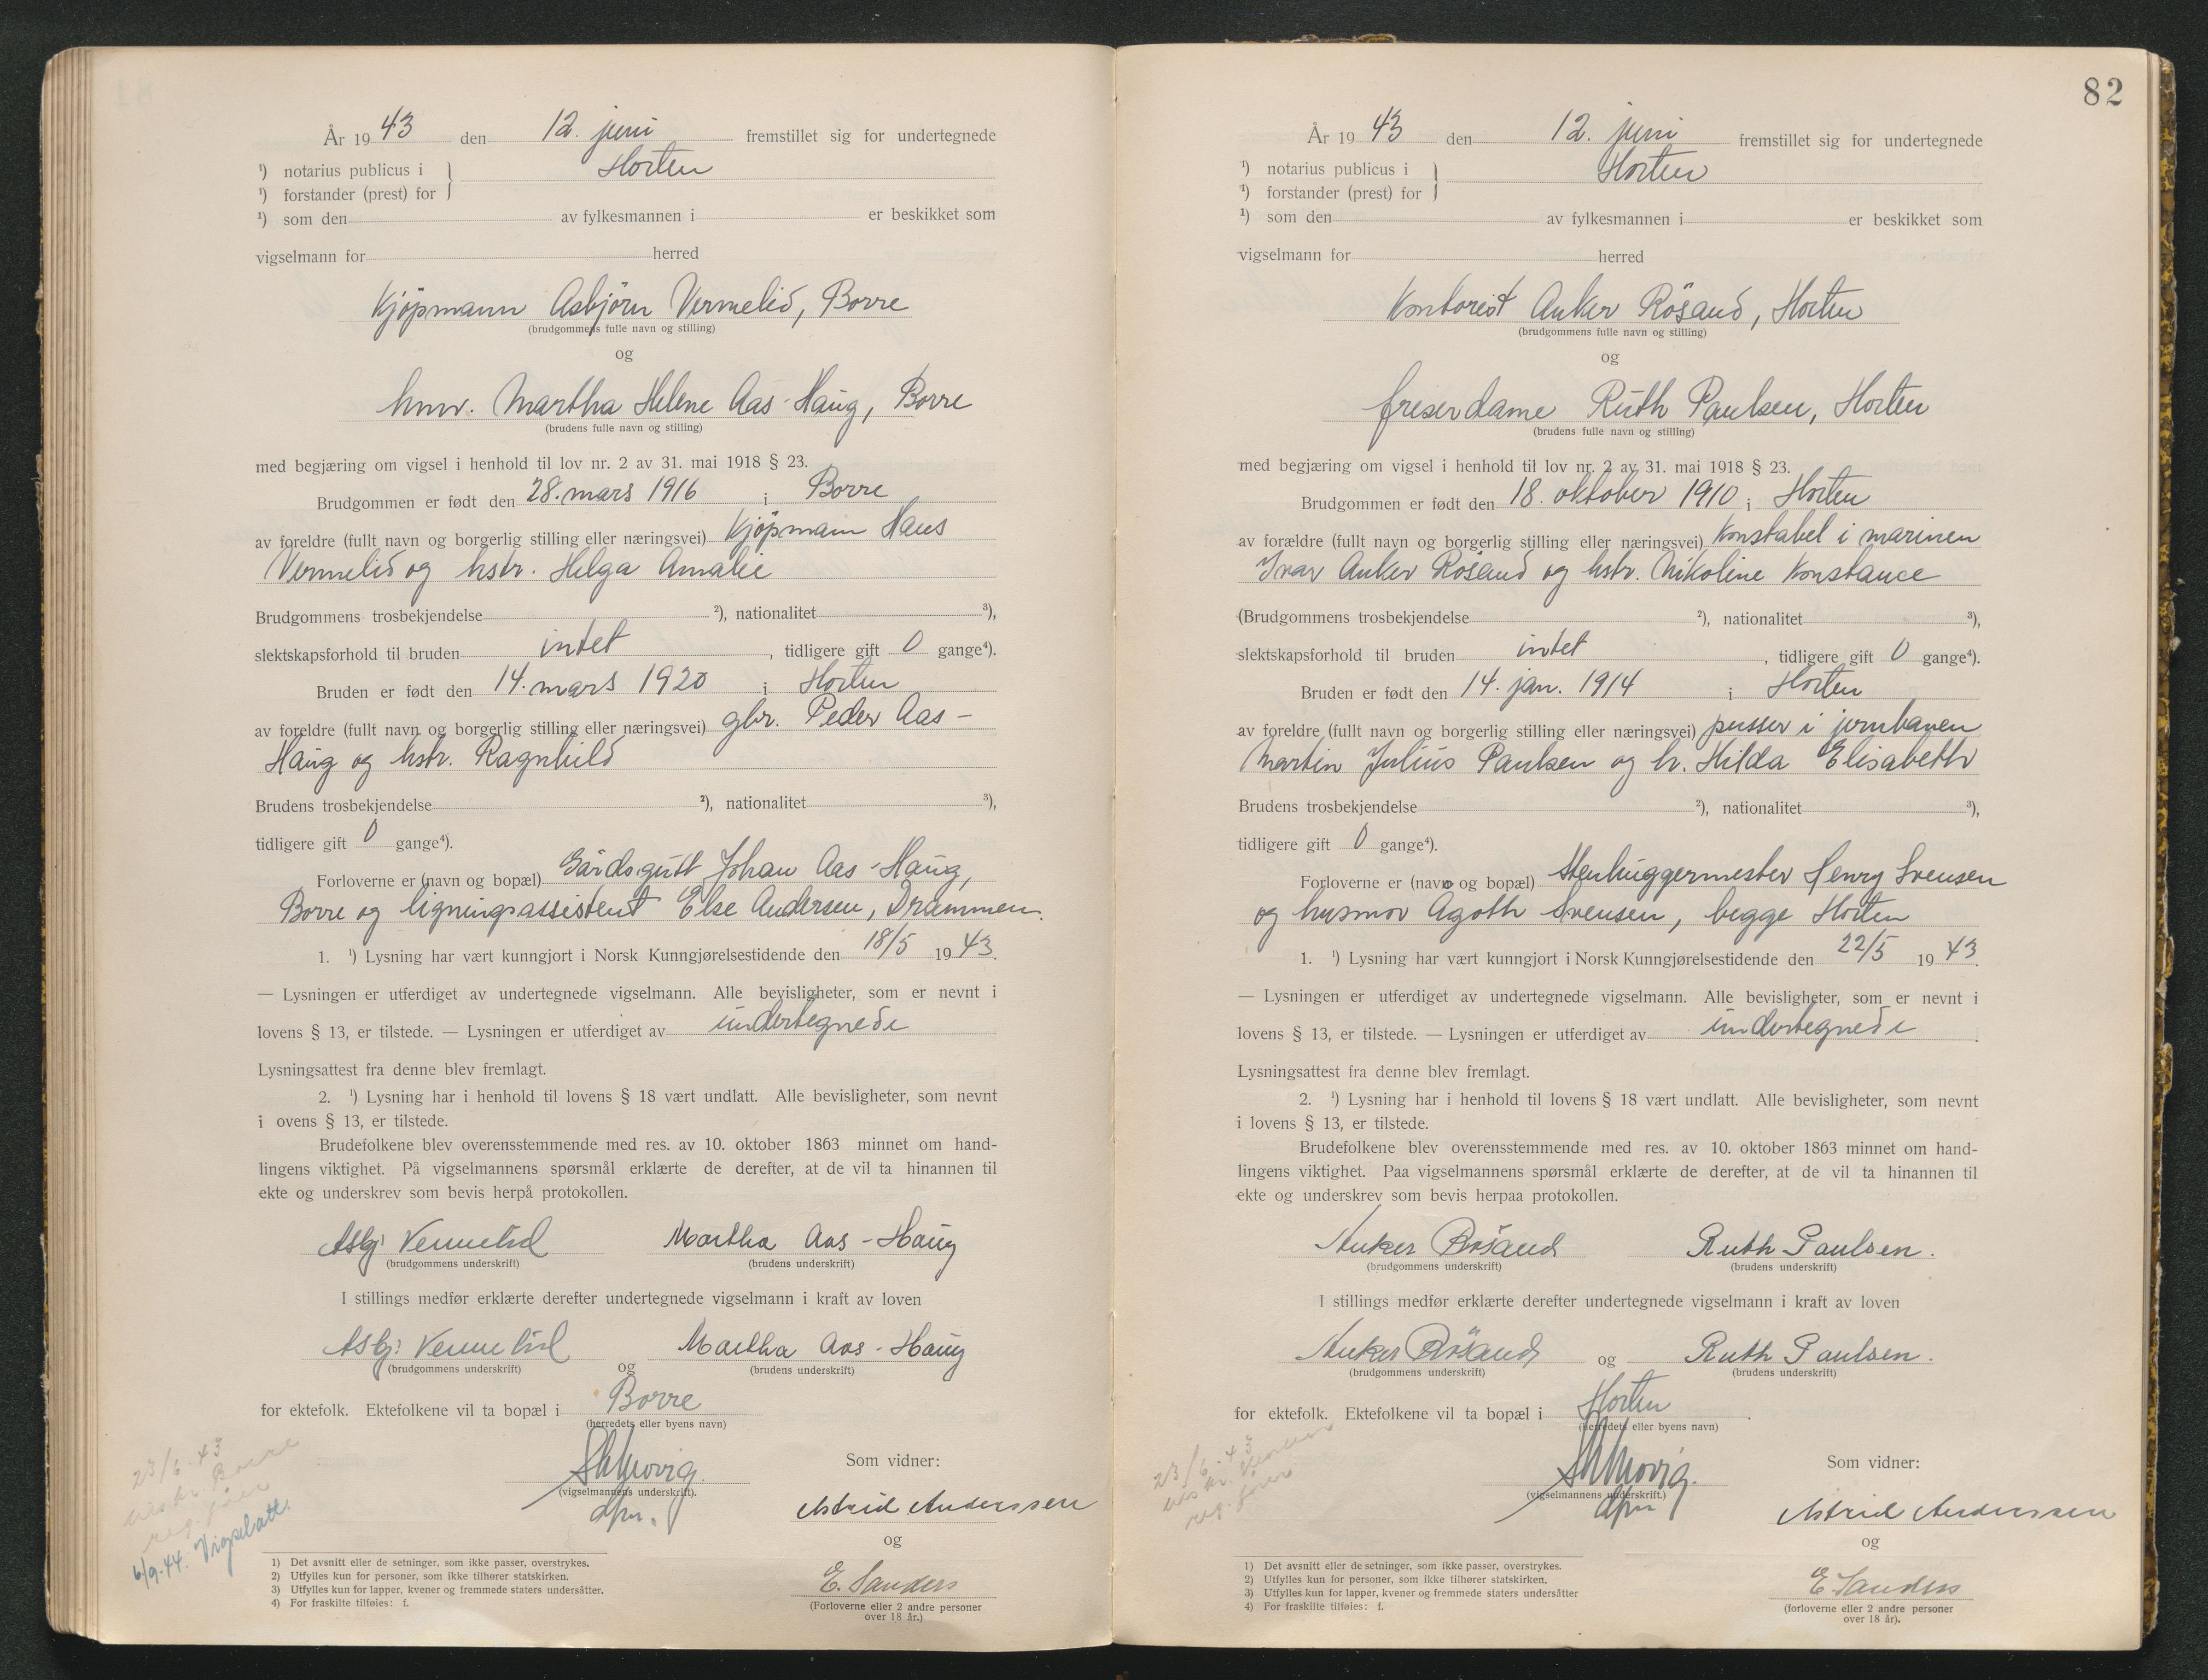 År 1943 den 12. juni fremstillet sig for undertegnede
¹) notarius publicus i } Horten
¹) forstander (prest) for
¹) som den av fylkesmannen i er beskikket som
vigselmann for herred
Kjöpmann Asbjörn Vermelid, Borre
(brudgommens fulle navn og stilling)
og
hmv. Martha Helene Aas-Haug, Borre
(brudens fulle navn og stilling)
med begjæring om vigsel i henhold til lov nr. 2 av 31. mai 1918 § 23.
Brudgommen er født den 28. mars 1916 i Borre
av foreldre (fullt navn og borgerlig stilling eller næringsvei) Kjöpmann Hans
Vermelid og hstr. Helga Amalie
Brudgommens trosbekjendelse ²), nationalitet ³),
slektskapsforhold til bruden intet, tidligere gift 0 gange⁴).
Bruden er født den 14. mars 1920 i Horten
av foreldre (fullt navn og borgerlig stilling eller næringsvei) gbr. Peder Aas-
Haug og hstr. Ragnhild
Brudens trosbekjendelse ²), nationalitet ³),
tidligere gift 0 gange⁴).
Forloverne er (navn og bopæl) Gårdsgutt Johan Aas-Haug,
Borre og ligningsassistent Else Andersen, Drammen.
1. ¹) Lysning har vært kunngjort i Norsk Kunngjørelsestidende den 18/5 1943.
— Lysningen er utferdiget av undertegnede vigselmann. Alle bevisligheter, som er nevnt i
lovens § 13, er tilstede. — Lysningen er utferdiget av undertegnede
Lysningsattest fra denne blev fremlagt.
2. ¹) Lysning har i henhold til lovens § 18 vært undlatt. Alle bevisligheter, som nevnt
i ovens § 13, er tilstede.
Brudefolkene blev overensstemmende med res. av 10. oktober 1863 minnet om hand-
lingens viktighet. På vigselmannens spørsmål erklærte de derefter, at de vil ta hinannen til
ekte og underskrev som bevis herpå protokollen.
Asbj. Vermelid Martha Aas-Haug
(brudgommens underskrift) (brudens underskrift)
I stillings medfør erklærte derefter undertegnede vigselmann i kraft av loven
Asbj. Vermelid og Martha Aas-Haug
(brudgommens underskrift) (brudens underskrift)
for ektefolk. Ektefolkene vil ta bopæl i Borre
(herredets eller byens navn)
23/6-43
Borre
reg. fører
6/9-44. Vigselatt.
Som vidner:
(vigselmannens underskrift).
dfm.
Astrid Anderssen
og
E. Sanders
(Forloverne eller 2 andre personer
over 18 år.)
1) Det avsnitt eller de setninger, som ikke passer, overstrykes.
2) Utfylles kun for personer, som ikke tilhører statskirken.
3) Utfylles kun for lapper, kvener og fremmede staters undersåtter.
4) For fraskilte tilføies: f.
82
År 1943 den 12. juni fremstillet sig for undertegnede
¹) notarius publicus i } Horten
¹) forstander (prest) for
¹) som den av fylkesmannen i er beskikket som
vigselmann for herred
Kontorist Anker Rösand, Horten
(brudgommens fulle navn og stilling)
og
friserdame Ruth Paulsen, Horten
(brudens fulle navn og stilling)
med begjæring om vigsel i henhold til lov nr. 2 av 31. mai 1918 § 23.
Brudgommen er født den 18. oktober 1910 i Horten
av forældre (fullt navn og borgerlig stilling eller næringsvei) Konstabel i marinen
Ivar Anker Rösand og hstr. Nikoline Konstance
(Brudgommens trosbekjendelse ²), nationalitet ³),
slektskapsforhold til bruden intet, tidligere gift 0 gange⁴).
Bruden er født den 14. jan. 1914 i Horten
av foreldre (fullt navn og borgerlig stilling eller næringsvei) pusser i jernbanen
Martin Julius Paulsen og h. Hilda Elisabeth
Brudens trosbekjendelse ²), nationalitet ³),
tidligere gift 0 gange⁴).
Forloverne er (navn og bopæl) Stenhuggermester Henry Svensen
og husmor Agoth Svensen, begge Horten
1. ¹) Lysning har vært kunngjort i Norsk Kunngjørelsestidende den 22/5 1943.
— Lysningen er utferdiget av undertegnede vigselmann. Alle bevisligheter, som er nevnt i
lovens § 13, er tilstede. — Lysningen er utferdiget av undertegnede
Lysningsattest fra denne blev fremlagt.
2. ¹) Lysning har i henhold til lovens § 18 vært undlatt. Alle bevisligheter, som nevnt
i lovens § 13, er tilstede.
Brudefolkene blev overensstemmende med res. av 10. oktober 1863 minnet om hand-
lingens viktighet. Paa vigselmannens spørsmål erklærte de derefter, at de vil ta hinannen til
ekte og underskrev som bevis herpaa protokollen.
Anker Rösand Ruth Paulsen.
(brudgommens underskrift) (brudens underskrift)
I stillings medfør erklærte derefter undertegnede vigselmann i kraft av loven
Anker Rösand og Ruth Paulsen.
(brudgommens underskrift) (brudens underskrift)
for ektefolk. Ektefolkene vil ta bopæl i Horten.
(herredets eller byens navn)
23/6-43
reg. fører
Som vidner:
(vigselmannens underskrift.)
dfm
Astrid Anderssen
og
E. Sanders
(forloverne eller 2 andre personer
over 18 år).
1) Det avsnitt eller de setninger, som ikke passer, overstrykes.
2) Utfylles kun for personer, som ikke tilhører statskirken.
3) Utfylles kun for lapper, kvener og fremmede staters undersåtter
4) For fraskilte tilføies: f.